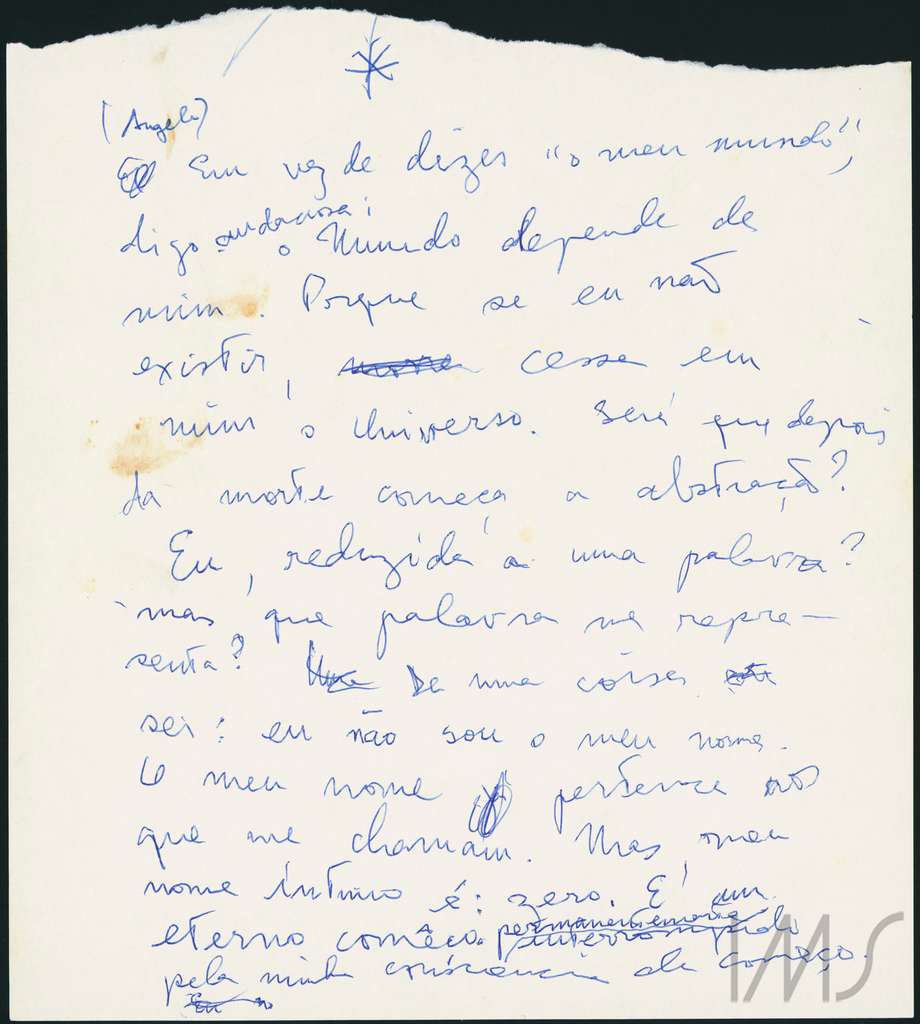 (Angela)
Em vez de dizer "o meu mundo",
digo audaciosa: o Mundo depende de
mim. Porque se eu não
existir, cessa em
mim o Universo. Será que depois
da morte começa a abstração?
Eu, reduzida a uma palavra?
mas que palavra me repre-
senta? De uma coisa
sei: eu não sou o meu nome.
O meu nome pertence aos
que me chamam. Mas meu
nome íntimo é: zero. É um
eterno comêço permanentemente
interrompido
pela minha consciência de começo.
Eu
IMS